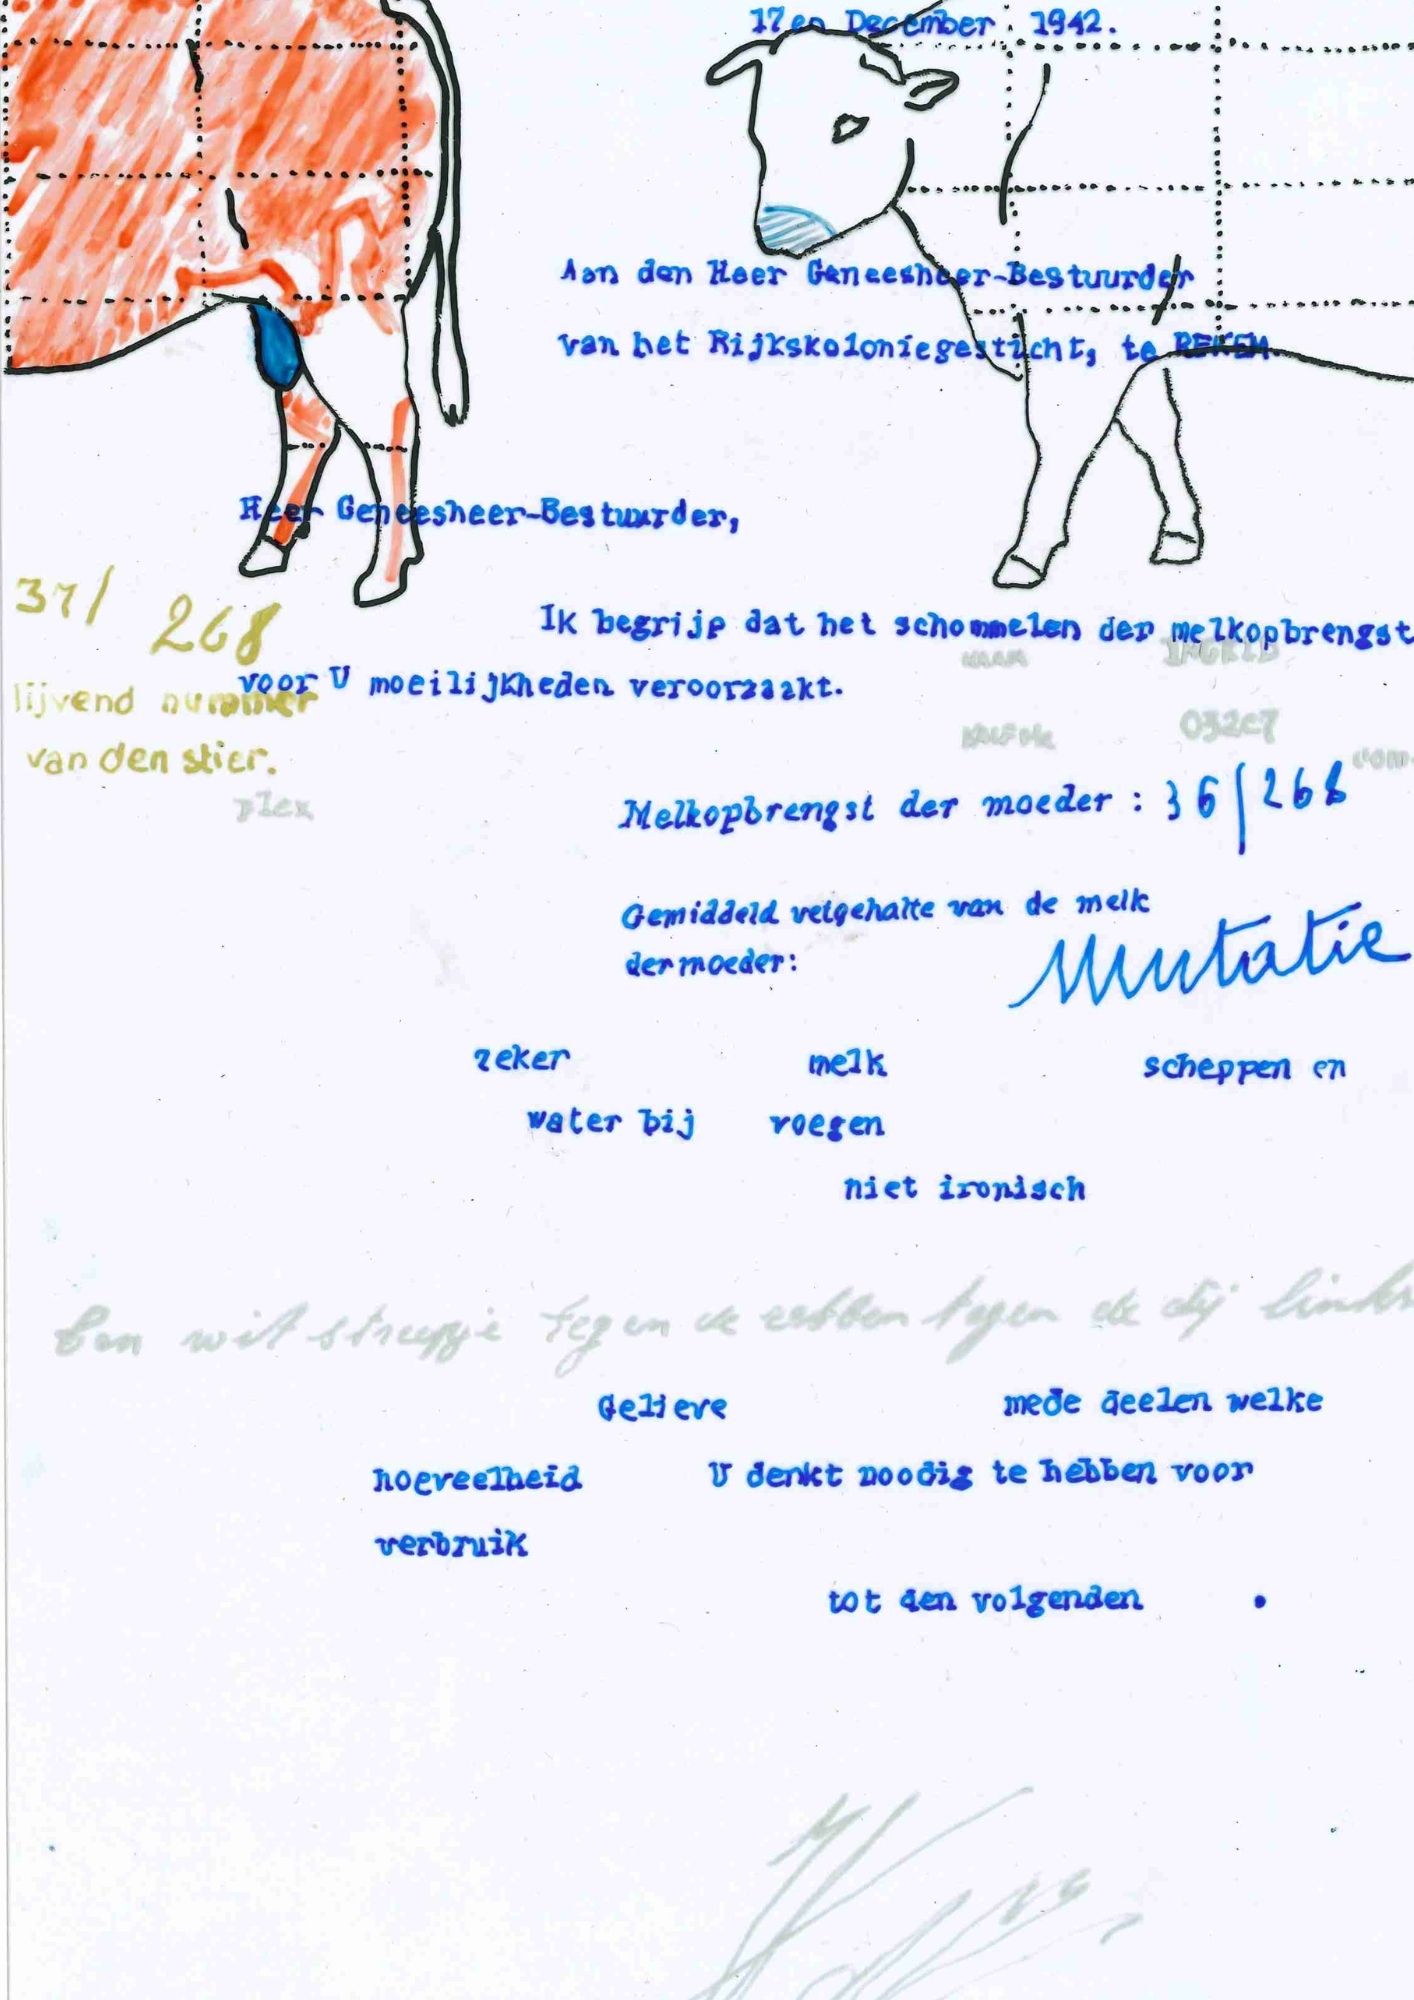 17en December 1942.
Aan den Heer Geneesheer-Bestuurder
van het Rijkskoloniegesticht, te REKEM.
Heer Geneesheer-Bestuurder,
37/268
Ik begrijp dat het schommelen der melkopbrengst
voor U moeilijkheden veroorzaakt.
NAAM INGRID
lijvend nummer
van den stier.
032c7
com-
plex
Melkopbrengst der moeder : 36/268
Gemiddeld vetgehalte van de melk
der moeder:
Mutatie
zeker melk scheppen en
water bij voegen
niet ironisch
Een wit streepje tegen de ribben tegen de dij links
Gelieve mede deelen welke
hoeveelheid U denkt noodig te hebben voor
verbruik
tot den volgenden .